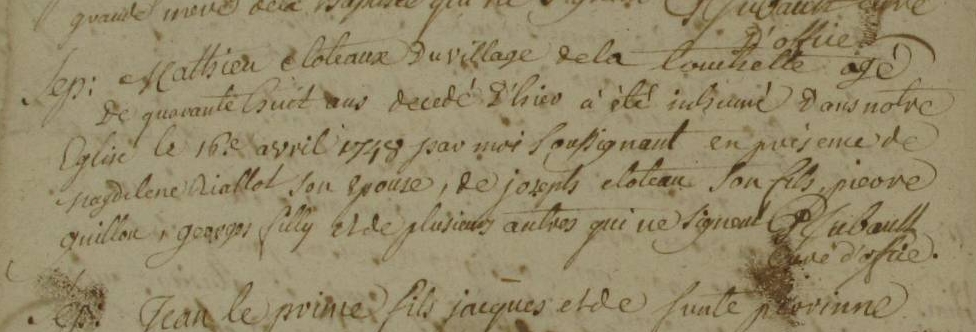 grande mere de la Baptisée qui ne signent PHubault curé
D'office
Sep: Mathieu cloteaux Du village de la Touchette agé
De quarante huit ans decedé D'hier à été inhumé Dans notre
Eglise le 16.e avril 1748 par moi Soussignant en présence de
Magdelene Riallot son epouse, de joseph cloteau Son fils, pierre
guillou, georges filly et de plusieurs autres qui ne signent PHubault
curé d'office.
Sep: Jean le prime fils jacques et de perrinne